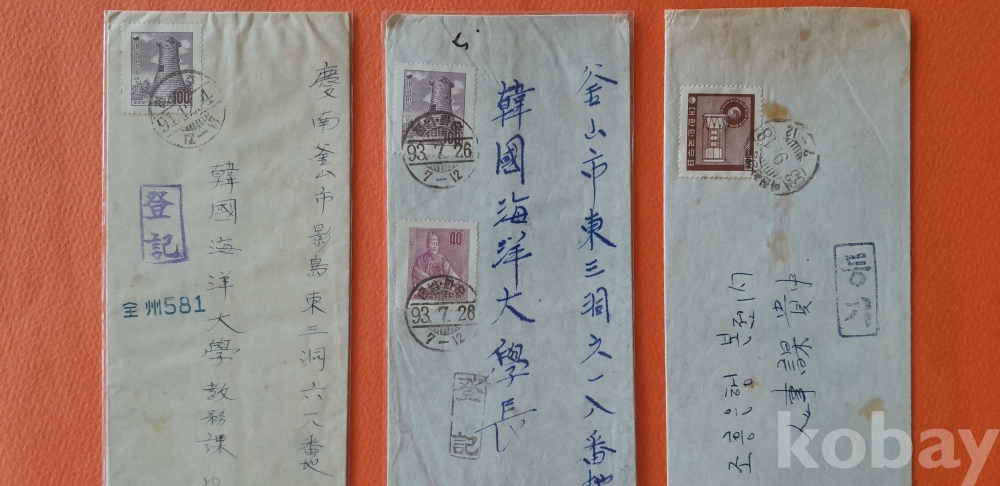 慶南釜山市影島東三洞六一八番地
韓國海洋大學教務課
登記
全州581
100
12-17
釜山市東三洞六一八番地
韓國海洋大學長
93.7.26
7-12
93.7.26
7-12
登記
조흥은행 본점内
人事課 貴中
등기
kobay